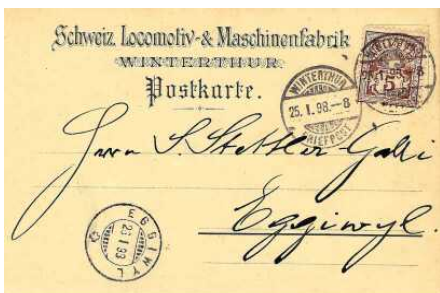 Schweiz. Locomotiv-& Maschinenfabrik
WINTERTHUR.
Postkarte.
WINTERTHUR
25.1.98.–8
BRIEFPOST
25.1.98.–8
5
Herrn S. Stettler-Galli
Eggiwyl.
EGGIWYL
26 I 98